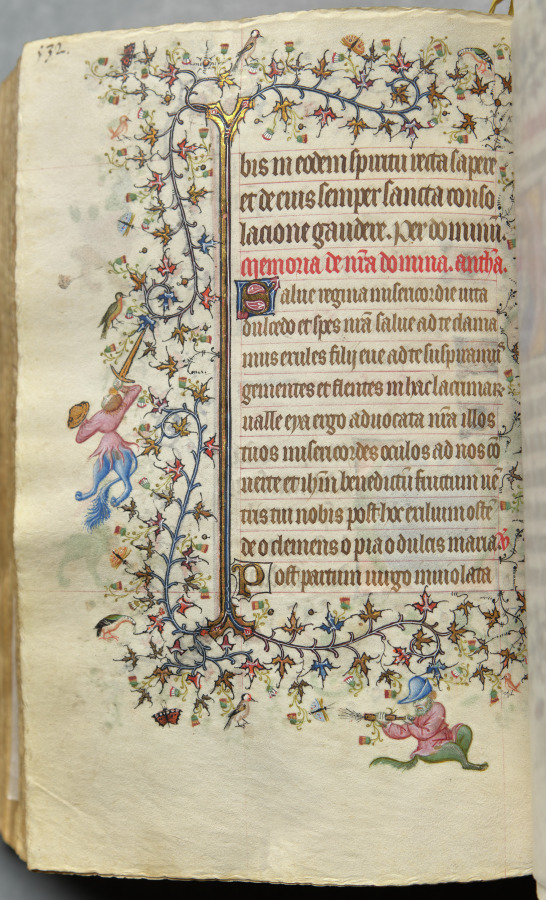 532.
bis in eodem spiritu recta sapere
et de eius semper sancta conso
lacione gaudere. Per dominū.
Memoria de nr̄a domina. anth̄a.
Salue regina misericordie uita
dulcedo et spes nr̄a salue ad te clama
mus exules filij eue ad te suspiramus
gementes et flentes in hac lacrimarū
ualle eya ergo aduocata nr̄a illos
tuos misericordes oculos ad nos cō
uerte et ih̄m benedictū fructum uē
tris tui nobis post hoc exilium ostē
de o clemens o pia o dulcis maria. v̄
Post partum uirgo inuiolata